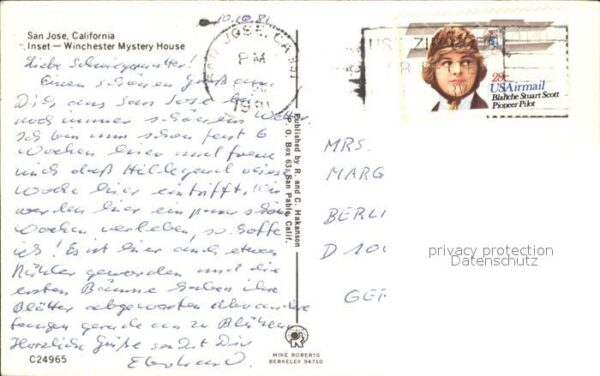 10.10.81
San Jose, California
Inset — Winchester Mystery House
Liebe Schwiegermutter!
Einen schönen Gruß an
Dich aus San Jose bei
noch immer schönem Wetter.
Ich bin nun schon fast 6
Wochen hier und freue
mich daß Hildegard diese
Woche hier eintrifft. Wir
werden hier ein paar schöne
Wochen verleben, so hoffe
ich! Es ist hier auch etwas
kühler geworden und die
ersten Bäume haben ihre
Blätter abgeworfen aber andere
fangen gerade an zu Blühen
Herzliche Grüße sendet Dir
Eberhard.
C24965
Published by R. and C. Hakanson
P. O. Box 63, San Pablo, Calif.
MIKE ROBERTS
BERKELEY 94710
SAN JOSE, CA 951
PM
1981
28c
USAirmail
Blanche Stuart Scott
Pioneer Pilot
MRS.
MARG
BERLI
D 100
GER
privacy protection
Datenschutz